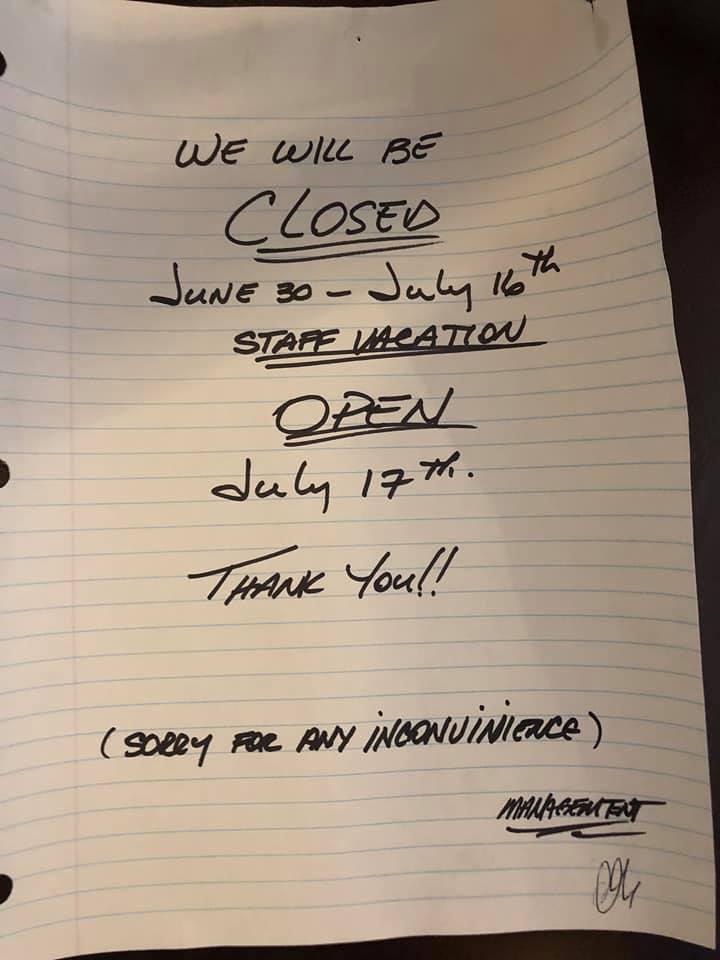 WE WILL BE
CLOSED
JUNE 30 - July 16th
STAFF VACATION
OPEN
July 17th.
THANK You!!
(SORRY FOR ANY INCONVINIENCE)
MANAGEMENT